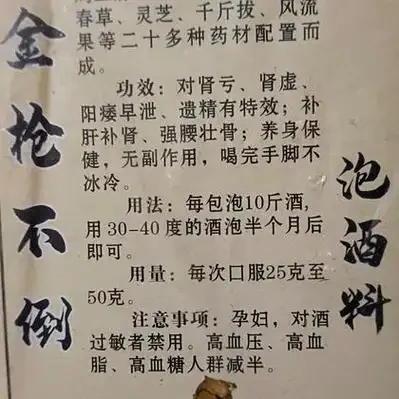 金枪不倒
春草、灵芝、千斤拔、风流
果等二十多种药材配置而
成。
功效：对肾亏、肾虚、
阳痿早泄、遗精有特效；补
肝补肾、强腰壮骨；养身保
健，无副作用，喝完手脚不
冰冷。
用法：每包泡10斤酒，
用30-40度的酒泡半个月后
即可。
用量：每次口服25克至
50克。
注意事项：孕妇，对酒
过敏者禁用。高血压、高血
脂、高血糖人群减半。
泡酒料